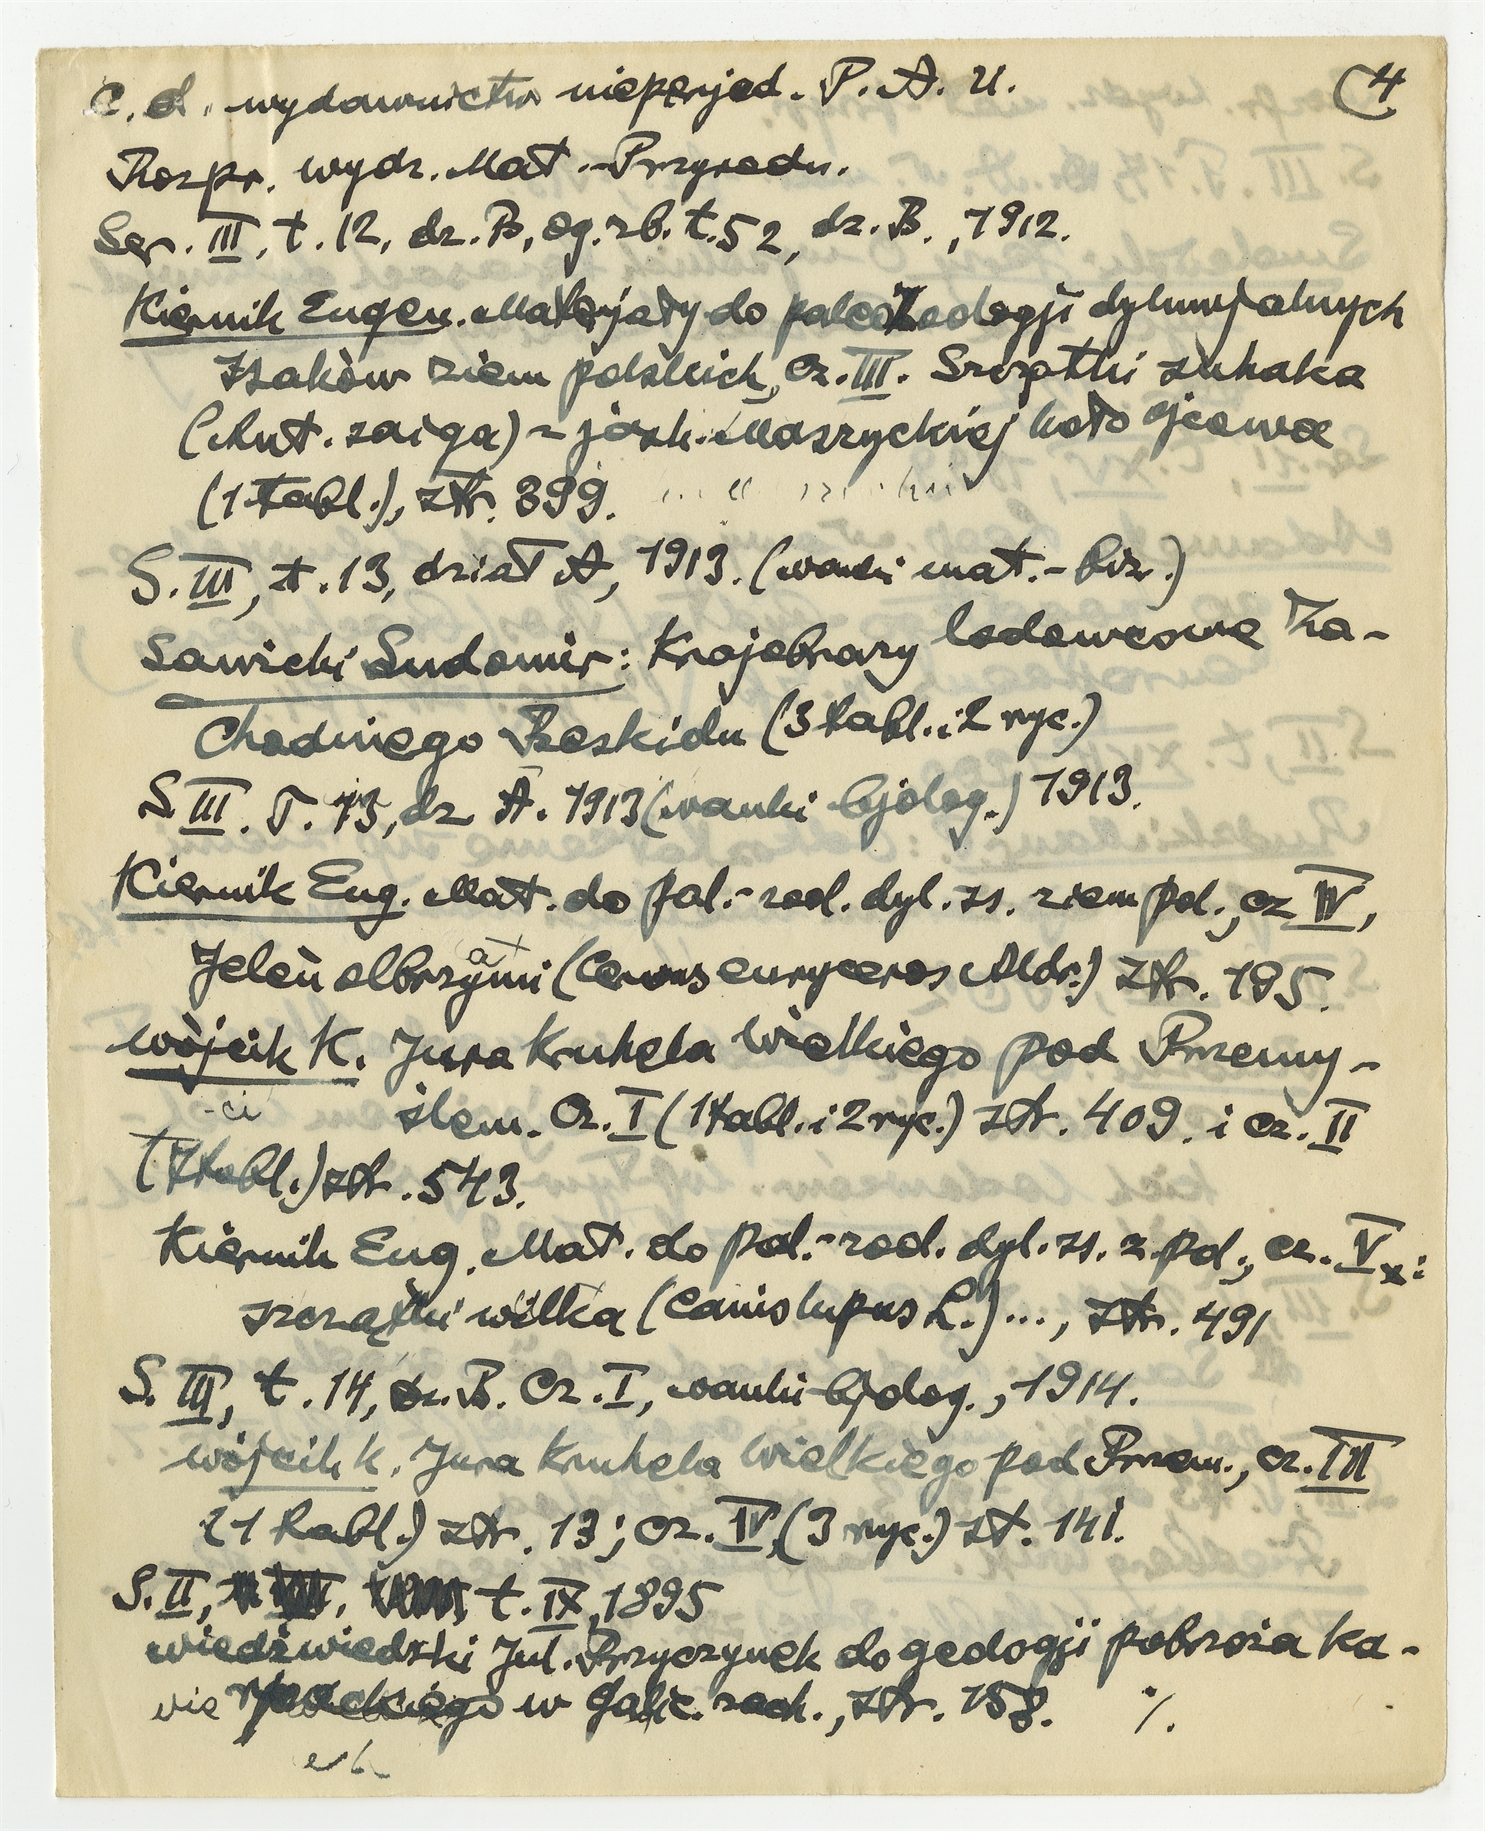 C. d. wydawnictw nieperjod. P. A. U. (4
Rozpr. wydz. Mat.-Przyrodn.
Ser. III, t. 12, dz. B, og. zb. t. 52, dz. B., 1912.
Kiernik Eugen. Materjały do paleozoologji dyluwjalnych
ssaków ziem polskich, cz. III. Szczątki suhaka
(Ant. saiga) z jask. Maszyckiej koło Ojcowa
(1 tabl.), str. 399.
S. III, t. 13, dział A, 1913. (nauki mat.-fiz.)
Sawicki Ludomir: Krajobrazy lodowcowe Za-
chodniego Beskidu (3 tabl. i 2 ryc.)
S III. T. 13, dz A. 1913 (nauki bjolog.) 1913.
Kiernik Eug. Mat. do pal.-zool. dyl. ss. ziem pol., cz IV,
Jeleń olbrzymi (Cervus euryceros Aldr.) str. 195.
Wójcik K. Jura Kruhela Wielkiego pod Przemy-
ślem. Cz. I (1 tabl. i 2 ryc.) str. 409. i cz. II
(7 tabl.) str. 543.
Kiernik Eug. Mat. do pal.-zool. dyl. ss. z. pol., cz. V x:
szczątki wilka (Canis lupus L.) ..., str. 491
S. III, t. 14, dz. B. Cz. I, nauki bjolog., 1914.
Wójcik K. Jura Kruhela Wielkiego pod Przem., cz. III
(1 tabl.) str. 13; cz. IV, (3 ryc.) st. 141.
S. II, t. IX, 1895
Niedźwiedzki Jul. Przyczynek do geologji pobrzeża Ka-
w Galic. zach., str. 158. %.